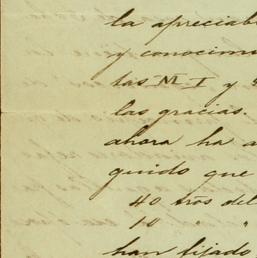 la apreciab
y conocim
las M I y
las gracias.
ahora ha a
guido que
40 tros del
10 " "
han fijado